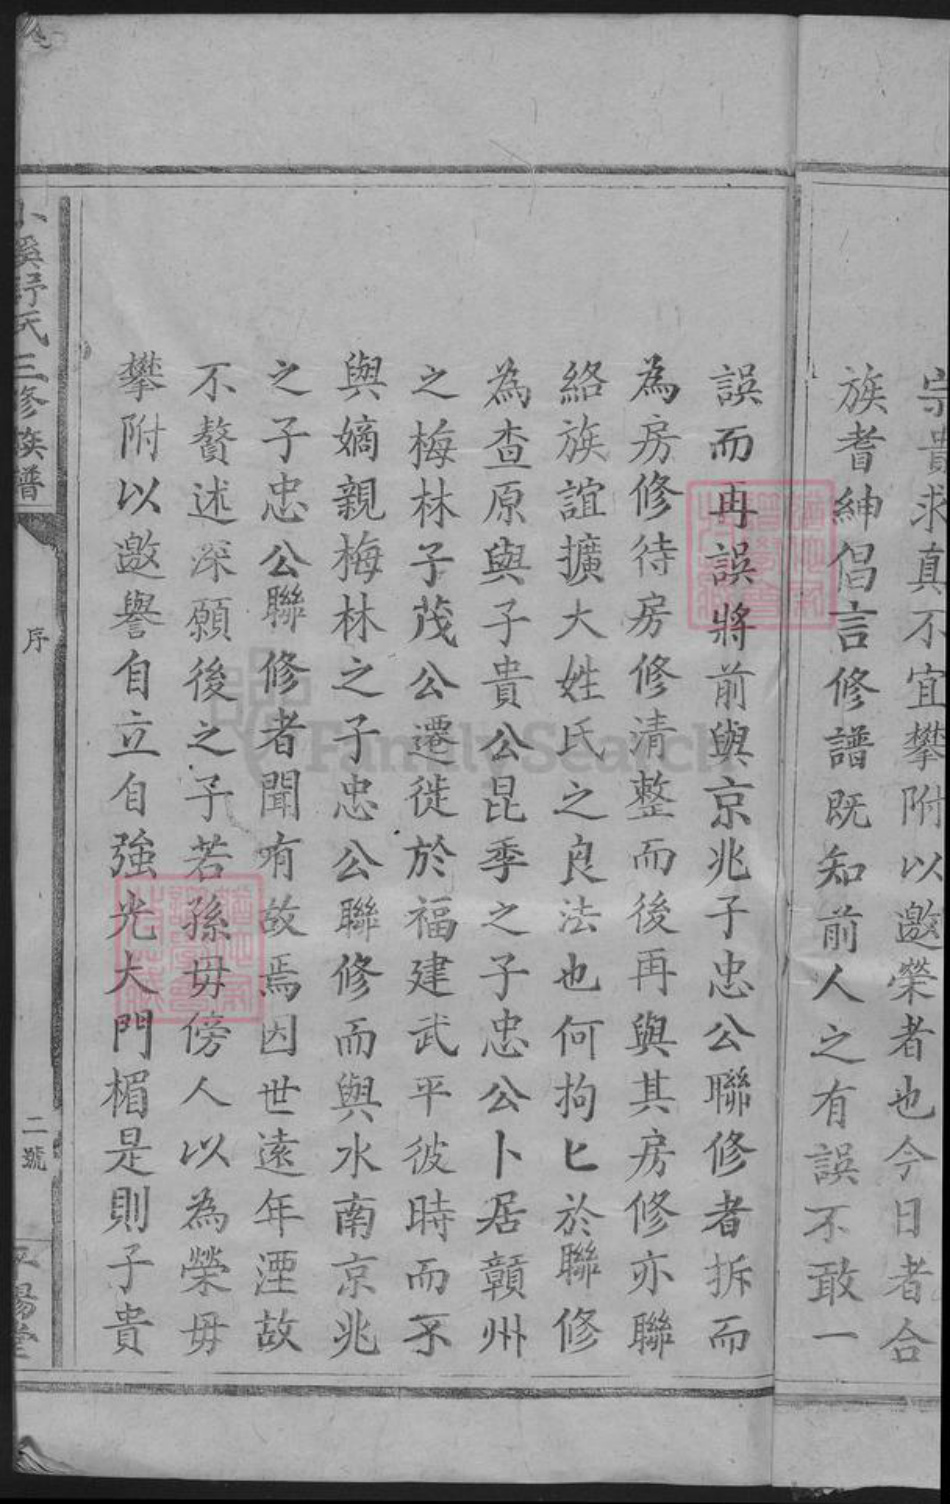 宗貴求真不宜攀附以邀榮者也今日者合
族耆紳倡言修譜既知前人之有誤不敢一
誤而再誤將前與京兆子忠公聯修者拆而
為房修待房修清整而後再與其房修亦聯
絡族誼擴大姓氏之良法也何拘匕於聯修
為查原與子貴公昆季之子忠公卜居贛州
之梅林子茂公遷徙於福建武平彼時而不
與嫡親梅林之子忠公聯修而與水南京兆
之子忠公聯修者聞有故焉因世遠年湮故
不贅述深願後之子若孫毋傍人以為榮毋
攀附以邀譽自立自強光大門楣是則子貴
小溪舒氏三修族譜
序
二號
平陽堂
FamilySearch